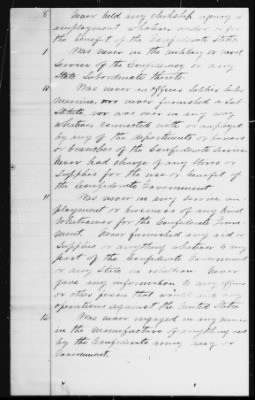 8 Never held any clerkship agency or
employment whatever under or for
the benefit of the Confederate States
9 Was never in the military or naval
service of the Confederacy or any
State Subordinate thereto
10 Was never an officer soldier
nor never furnished a Sub
stitute nor was ever in any way
whatever connected with or employed
by any of the departments
or branches of the Confederate service
Never had charge of any stores or
Supplies for the use or benefit of
the Confederate Government
11 Was never in any service em
ployment or business of any kind
whatsoever for the Confederate Govern
ment. Never furnished any aid or
Supplies or anything whatever to any
part of the Confederate Government
or any State in rebellion. Never
gave any information to any officer
or other person that would aid any
operations against the United States
12 Was never engaged in any manner
in the manufacture of anything used
by the Confederate army navy or
Government.